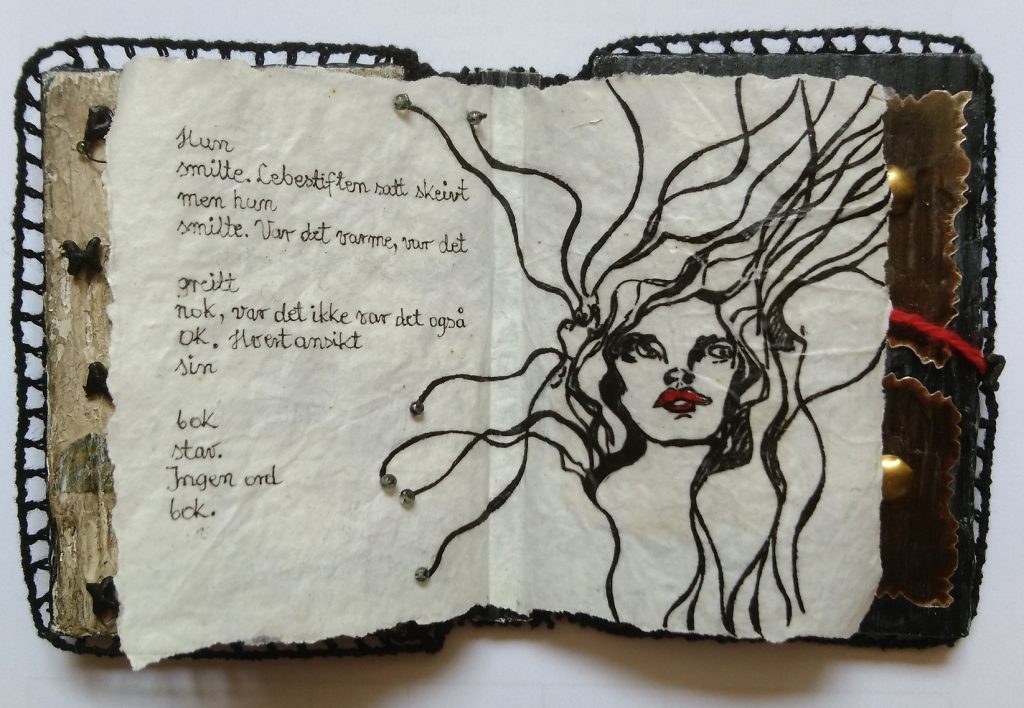 Hun
smilte. Lebestiften satt skeivt
men hun
smilte. Var det varme, var det
greitt
nok, var det ikke var det også
OK. Hvert ansikt
sin
bok
stav.
Ingen ord
bok.